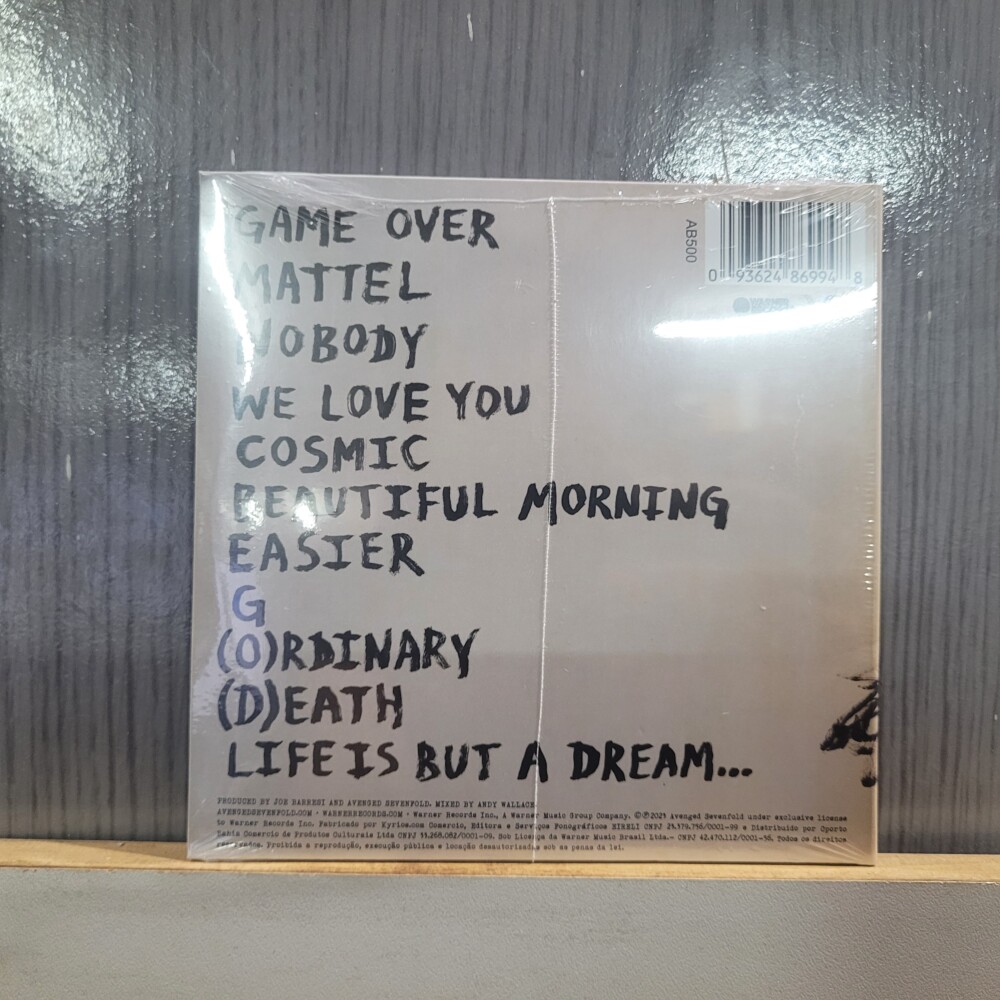 GAME OVER
MATTEL
NOBODY
WE LOVE YOU
COSMIC
BEAUTIFUL MORNING
EASIER
G
(O)RDINARY
(D)EATH
LIFE IS BUT A DREAM...
AB500
0 93624 86994 8
PRODUCED BY JOE BARRESI AND AVENGED SEVENFOLD. MIXED BY ANDY WALLACE.
AVENGEDSEVENFOLD.COM • WARNERRECORDS.COM • Warner Records Inc., A Warner Music Group Company. ©℗2023 Avenged Sevenfold under exclusive license
to Warner Records Inc. Fabricado por Kyrios.com Comercio, Editora e Serviços Fonográficos EIRELI CNPJ 23.379.758/0001-99 e Distribuido por Oporto
Bahia Comercio de Produtos Culturais Ltda CNPJ 33.268.082/0001-09. Sob Licença da Warner Music Brasil Ltda.- CNPJ 42.470.112/0001-36. Todos os direitos
reservados. Proibida a reprodução, execução pública e locação desautorizadas sob as penas da lei.